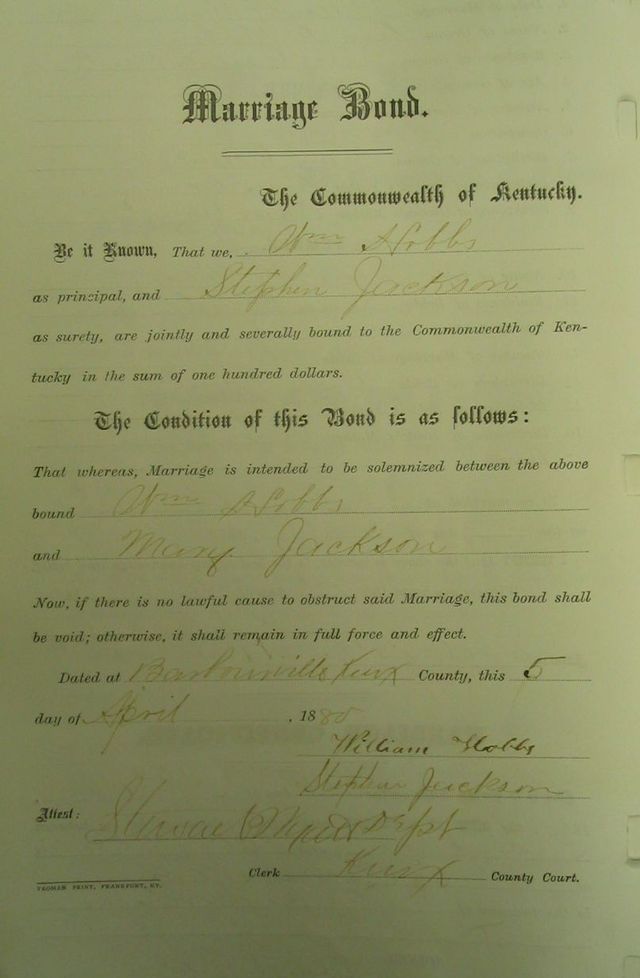 Marriage Bond.
The Commonwealth of Kentucky.
Be it Known, That we, Wm Hobbs
as principal, and Stephen Jackson
as surety, are jointly and severally bound to the Commonwealth of Ken-
tucky in the sum of one hundred dollars.
The Condition of this Bond is as follows:
That whereas, Marriage is intended to be solemnized between the above
bound Wm Hobbs
and Mary Jackson
Now, if there is no lawful cause to obstruct said Marriage, this bond shall
be void; otherwise, it shall remain in full force and effect.
Dated at Barbourville Knox County, this 5
day of April, 1880
William Hobbs
Stephen Jackson
Attest:
Clerk Knox County Court.
YEOMAN PRINT, FRANKFORT, KY.